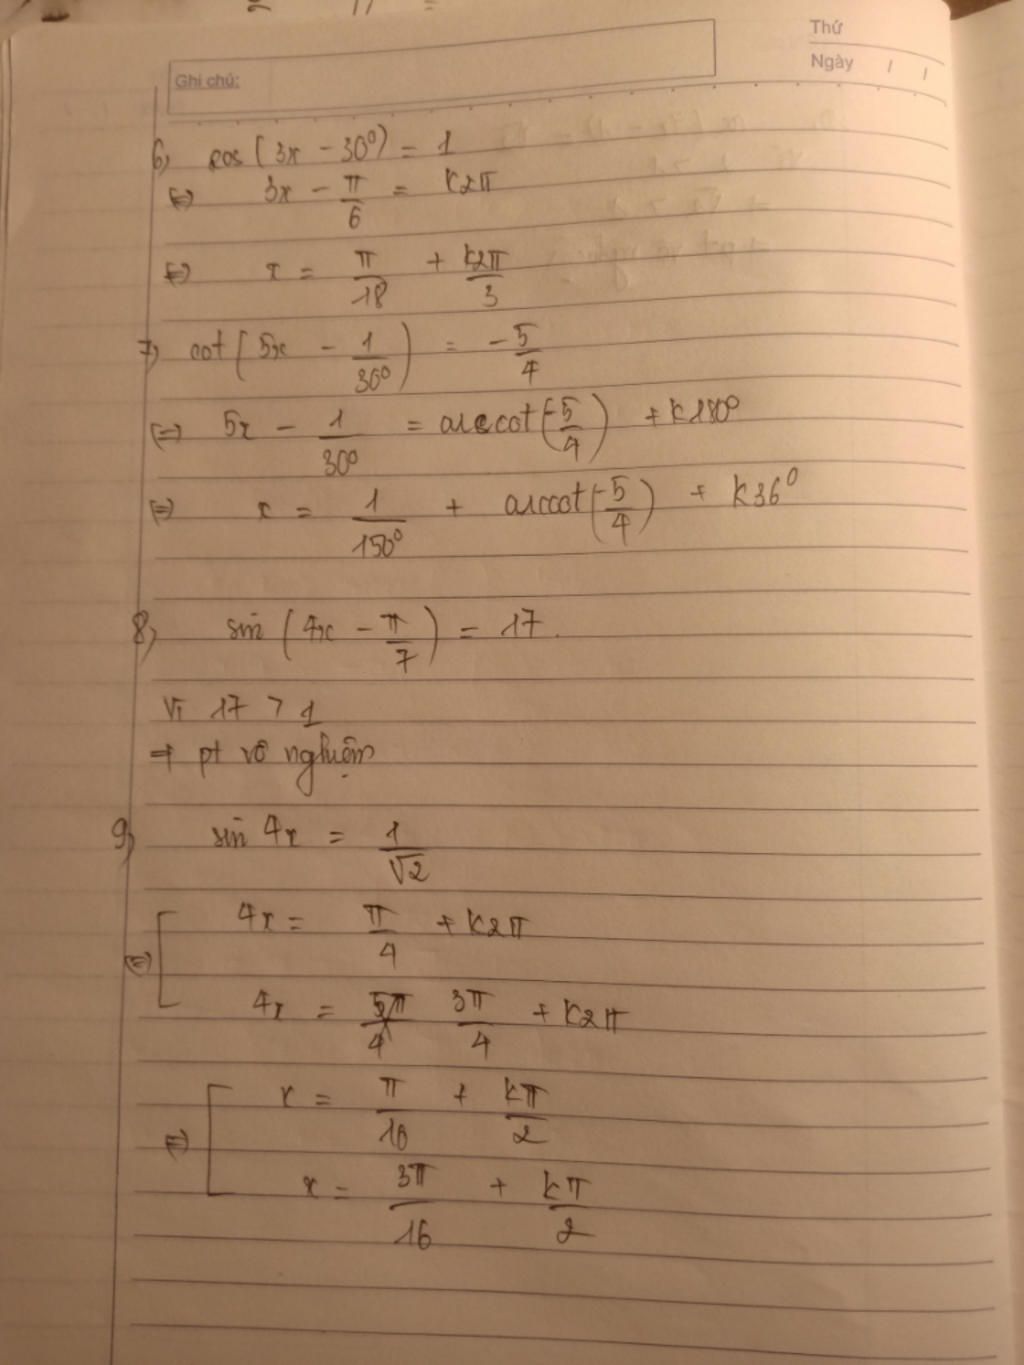 Thứ
Ghi chú:
Ngày / /
6) cos(3x - 30°) = 1
⇔ 3x - π/6 = k2π
⇔ x = π/18 + k2π/3
7) cot(5x - 1/30°) = -5/4
⇔ 5x - 1/30° = arccot(-5/4) + k180°
⇔ x = 1/150° + arccot(-5/4) + k36°
8) sin(4x - π/7) = 17.
Vì 17 > 1
⇒ pt vô nghiệm
9) sin 4x = 1/√2
⇔ [ 4x = π/4 + k2π
4x = 5π/4 3π/4 + k2π
⇔ [ x = π/16 + kπ/2
x = 3π/16 + kπ/2